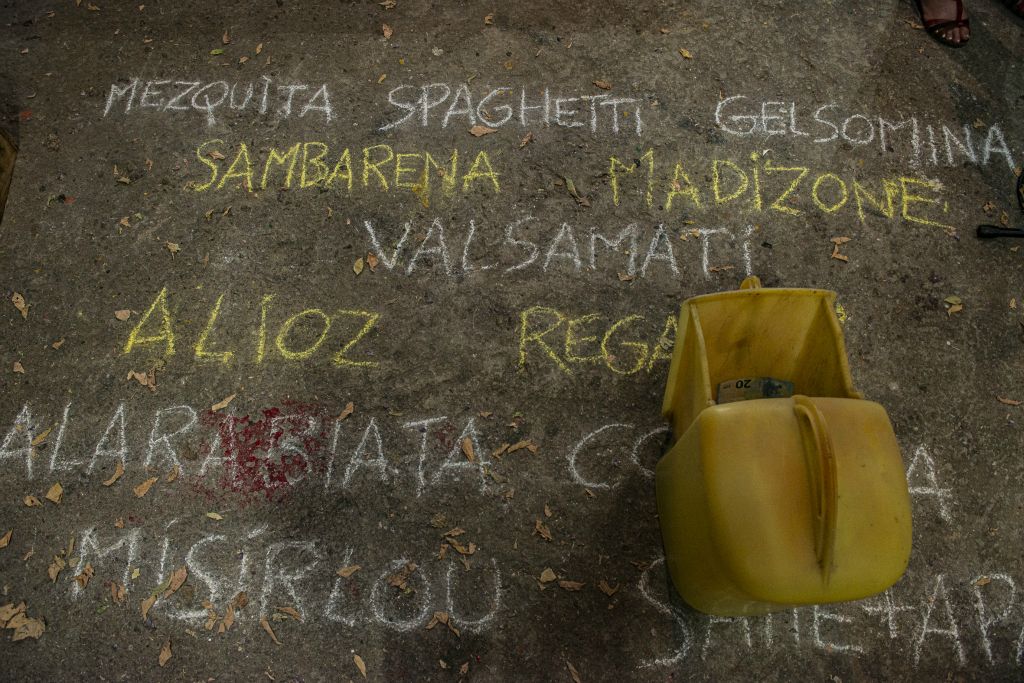 MEZQUITA SPAGHETTI GELSOMINA
SAMBARENA MADIZONE
VALSAMATI
ALIOZ REGA
ALARABIATA CO A
MISIRLOU
20